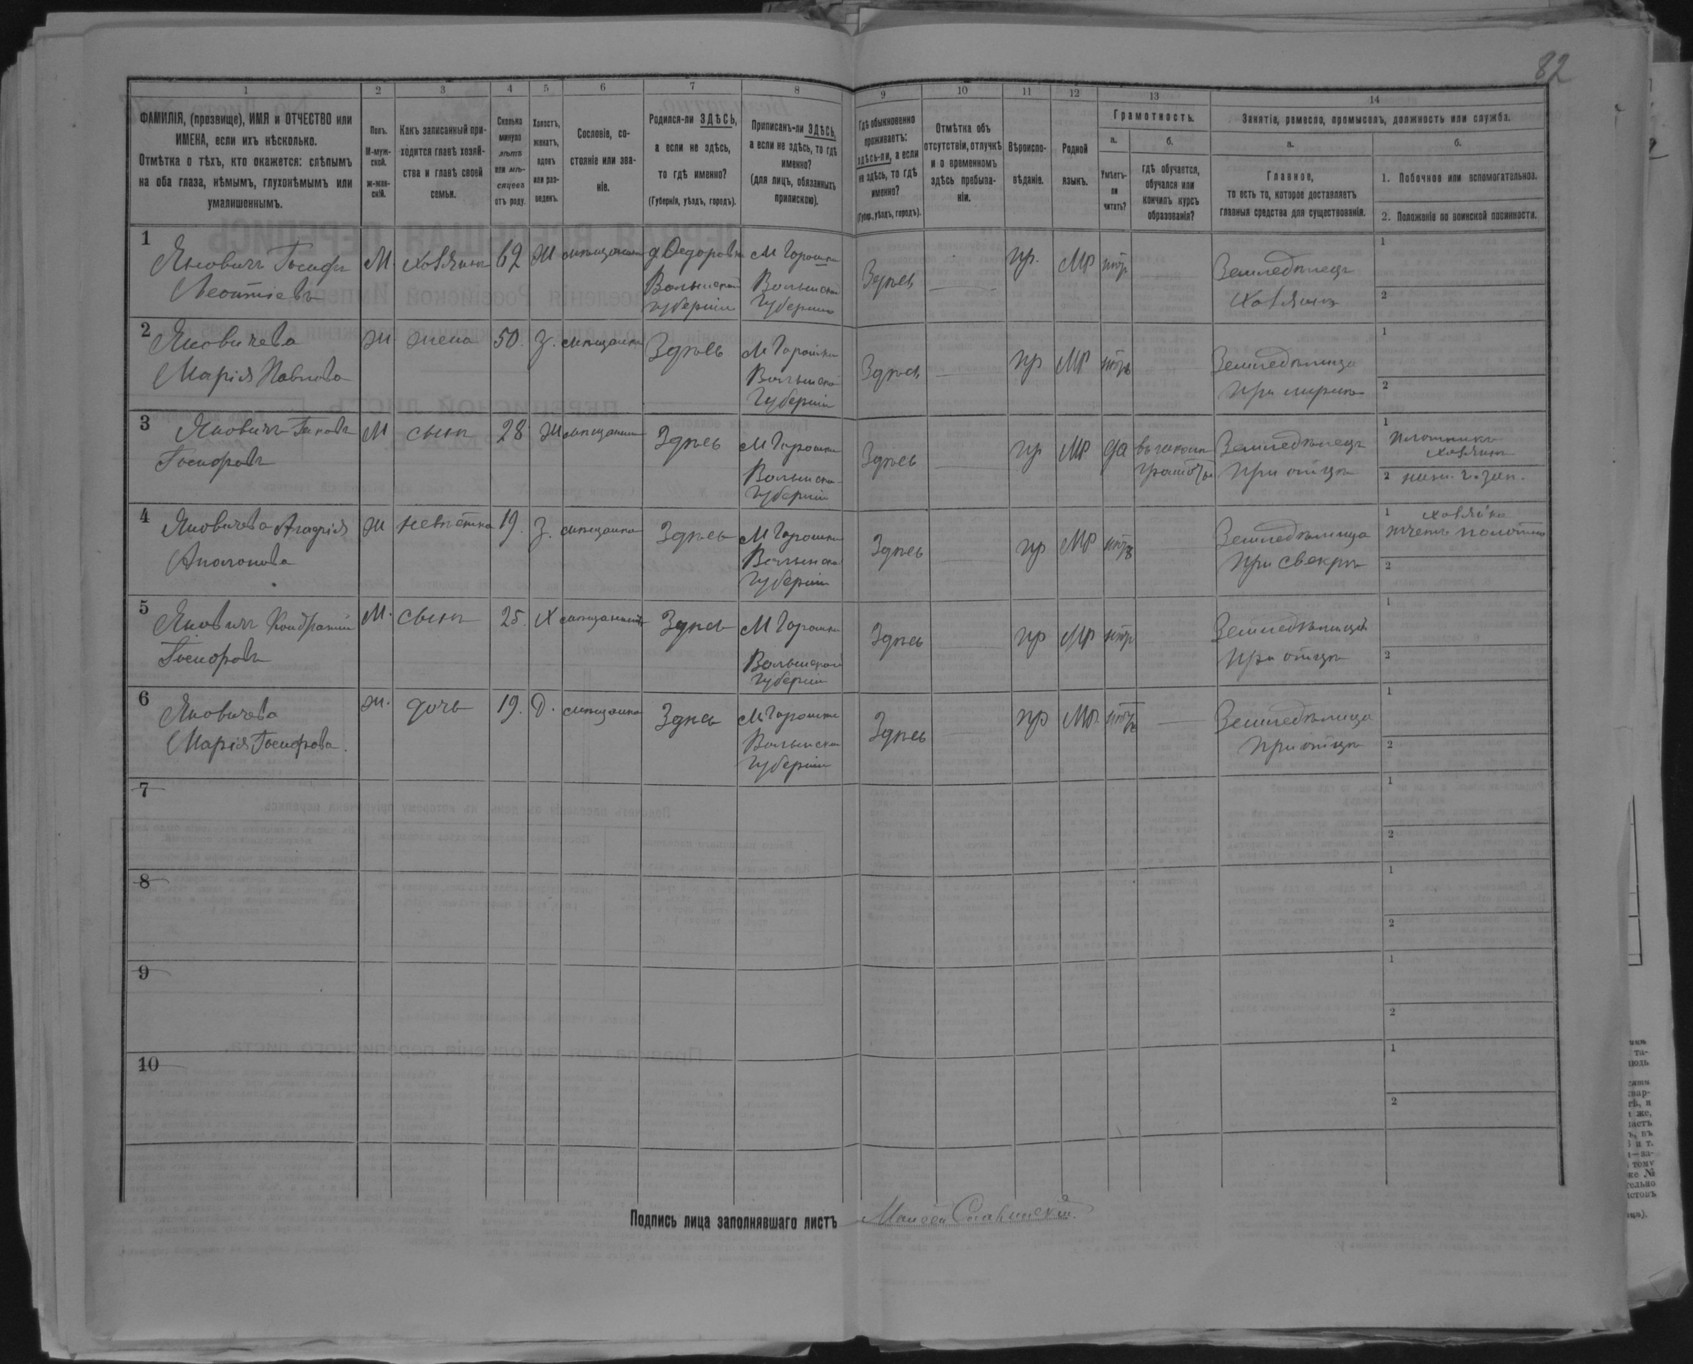 82
1 2 3 4 5 6 7 8 9 10 11 12 13 14
ФАМИЛІЯ, (прозвище), ИМЯ и ОТЧЕСТВО или
ИМЕНА, если ихъ нѣсколько.
Отмѣтка о тѣхъ, кто окажется: слѣпымъ
на оба глаза, нѣмымъ, глухонѣмымъ или
умалишеннымъ.
Полъ.
М-муж-
ской.
ж-жен-
скій.
Какъ записанный при-
ходится главѣ хозяй-
ства и главѣ своей
семьи.
Сколько
минуло
лѣтъ
или мѣ-
сяцевъ
отъ роду.
Холостъ,
женатъ,
вдовъ
или раз-
веденъ.
Сословіе, со-
стояніе или зва-
ніе.
Родился-ли ЗДѢСЬ,
а если не здѣсь,
то гдѣ именно?
(Губернія, уѣздъ, городъ).
Приписанъ-ли ЗДѢСЬ,
а если не здѣсь, то гдѣ
именно?
(для лицъ, обязанныхъ
припискою).
Гдѣ обыкновенно
проживаетъ:
здѣсь-ли, а если
не здѣсь, то гдѣ
именно?
(Губер., уѣздъ, городъ).
Отмѣтка объ
отсутствіи, отлучкѣ
и о временномъ
здѣсь пребыва-
ніи.
Вѣроиспо-
вѣданіе.
Родной
языкъ.
Грамотность.
а.
Умѣетъ-
ли
читать?
б.
гдѣ обучается,
обучался или
кончилъ курсъ
образованія?
Занятіе, ремесло, промыселъ, должность или служба.
а.
Главное,
то есть то, которое доставляетъ
главныя средства для существованія.
б.
1. Побочное или вспомогательное.
2. Положеніе по воинской повинности.
1 Яновичъ Іосифъ М хозяинъ 62 Ж мѣщанинъ д Федоровка М Горошки Здѣсь пр. МР нѣтъ Земледѣлецъ 1
Леонтіевъ Волынской губерніи Волынской губерніи хозяинъ 2
2 Яновичева ж жена 50. З. мѣщанка Здѣсь М Горошки Здѣсь пр МР нѣтъ Земледѣлица 1
Марія Павлова Волынской Губерніи при мужѣ 2
3 Яновичъ М сынъ 28 Ж мѣщанинъ Здѣсь М Горошки Здѣсь пр МР да Земледѣлецъ 1 плотникъ хозяинъ
Іосифовъ Волынской губерніи при отцѣ 2
4 Яновичева ж невѣстка 19. З. мѣщанка Здѣсь М Горошки Здѣсь пр МР нѣтъ Земледѣлица 1
Волынской губерніи при свекрѣ 2
5 Яновичъ Кондратій М. сынъ 25 Х мѣщанинъ Здѣсь М Горошки Здѣсь пр МР нѣтъ 1
Іосифовъ Волынской губерніи при отцѣ 2
6 Яновичева ж. дочь 19. Д. мѣщанка Здѣсь М Горошки Здѣсь пр МР. нѣтъ Земледѣлица 1
Марія Іосифова. Волынской губерніи при отцѣ 2
7 1
2
8 1
2
9 1
2
10 1
2
Подпись лица заполнявшаго листъ